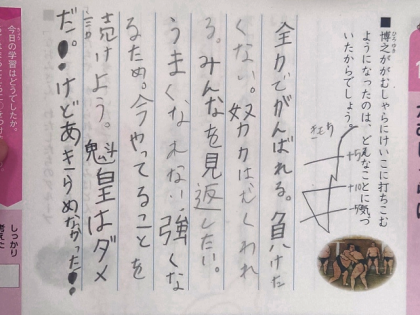 ■博之ががむしゃらにけいこに打ちこむ
ようになったのは、どんなことに気づ
いたからでしょう。
全力でがんばれる。負けた
くない。
る。みんなを見返したい。
うまくなれない!強くな
るため。今やってることを
続けよう。魁皇はダメ
だ!けどあきらめなかった!
今日の学習はどうでしたか。
しっかり
考えた